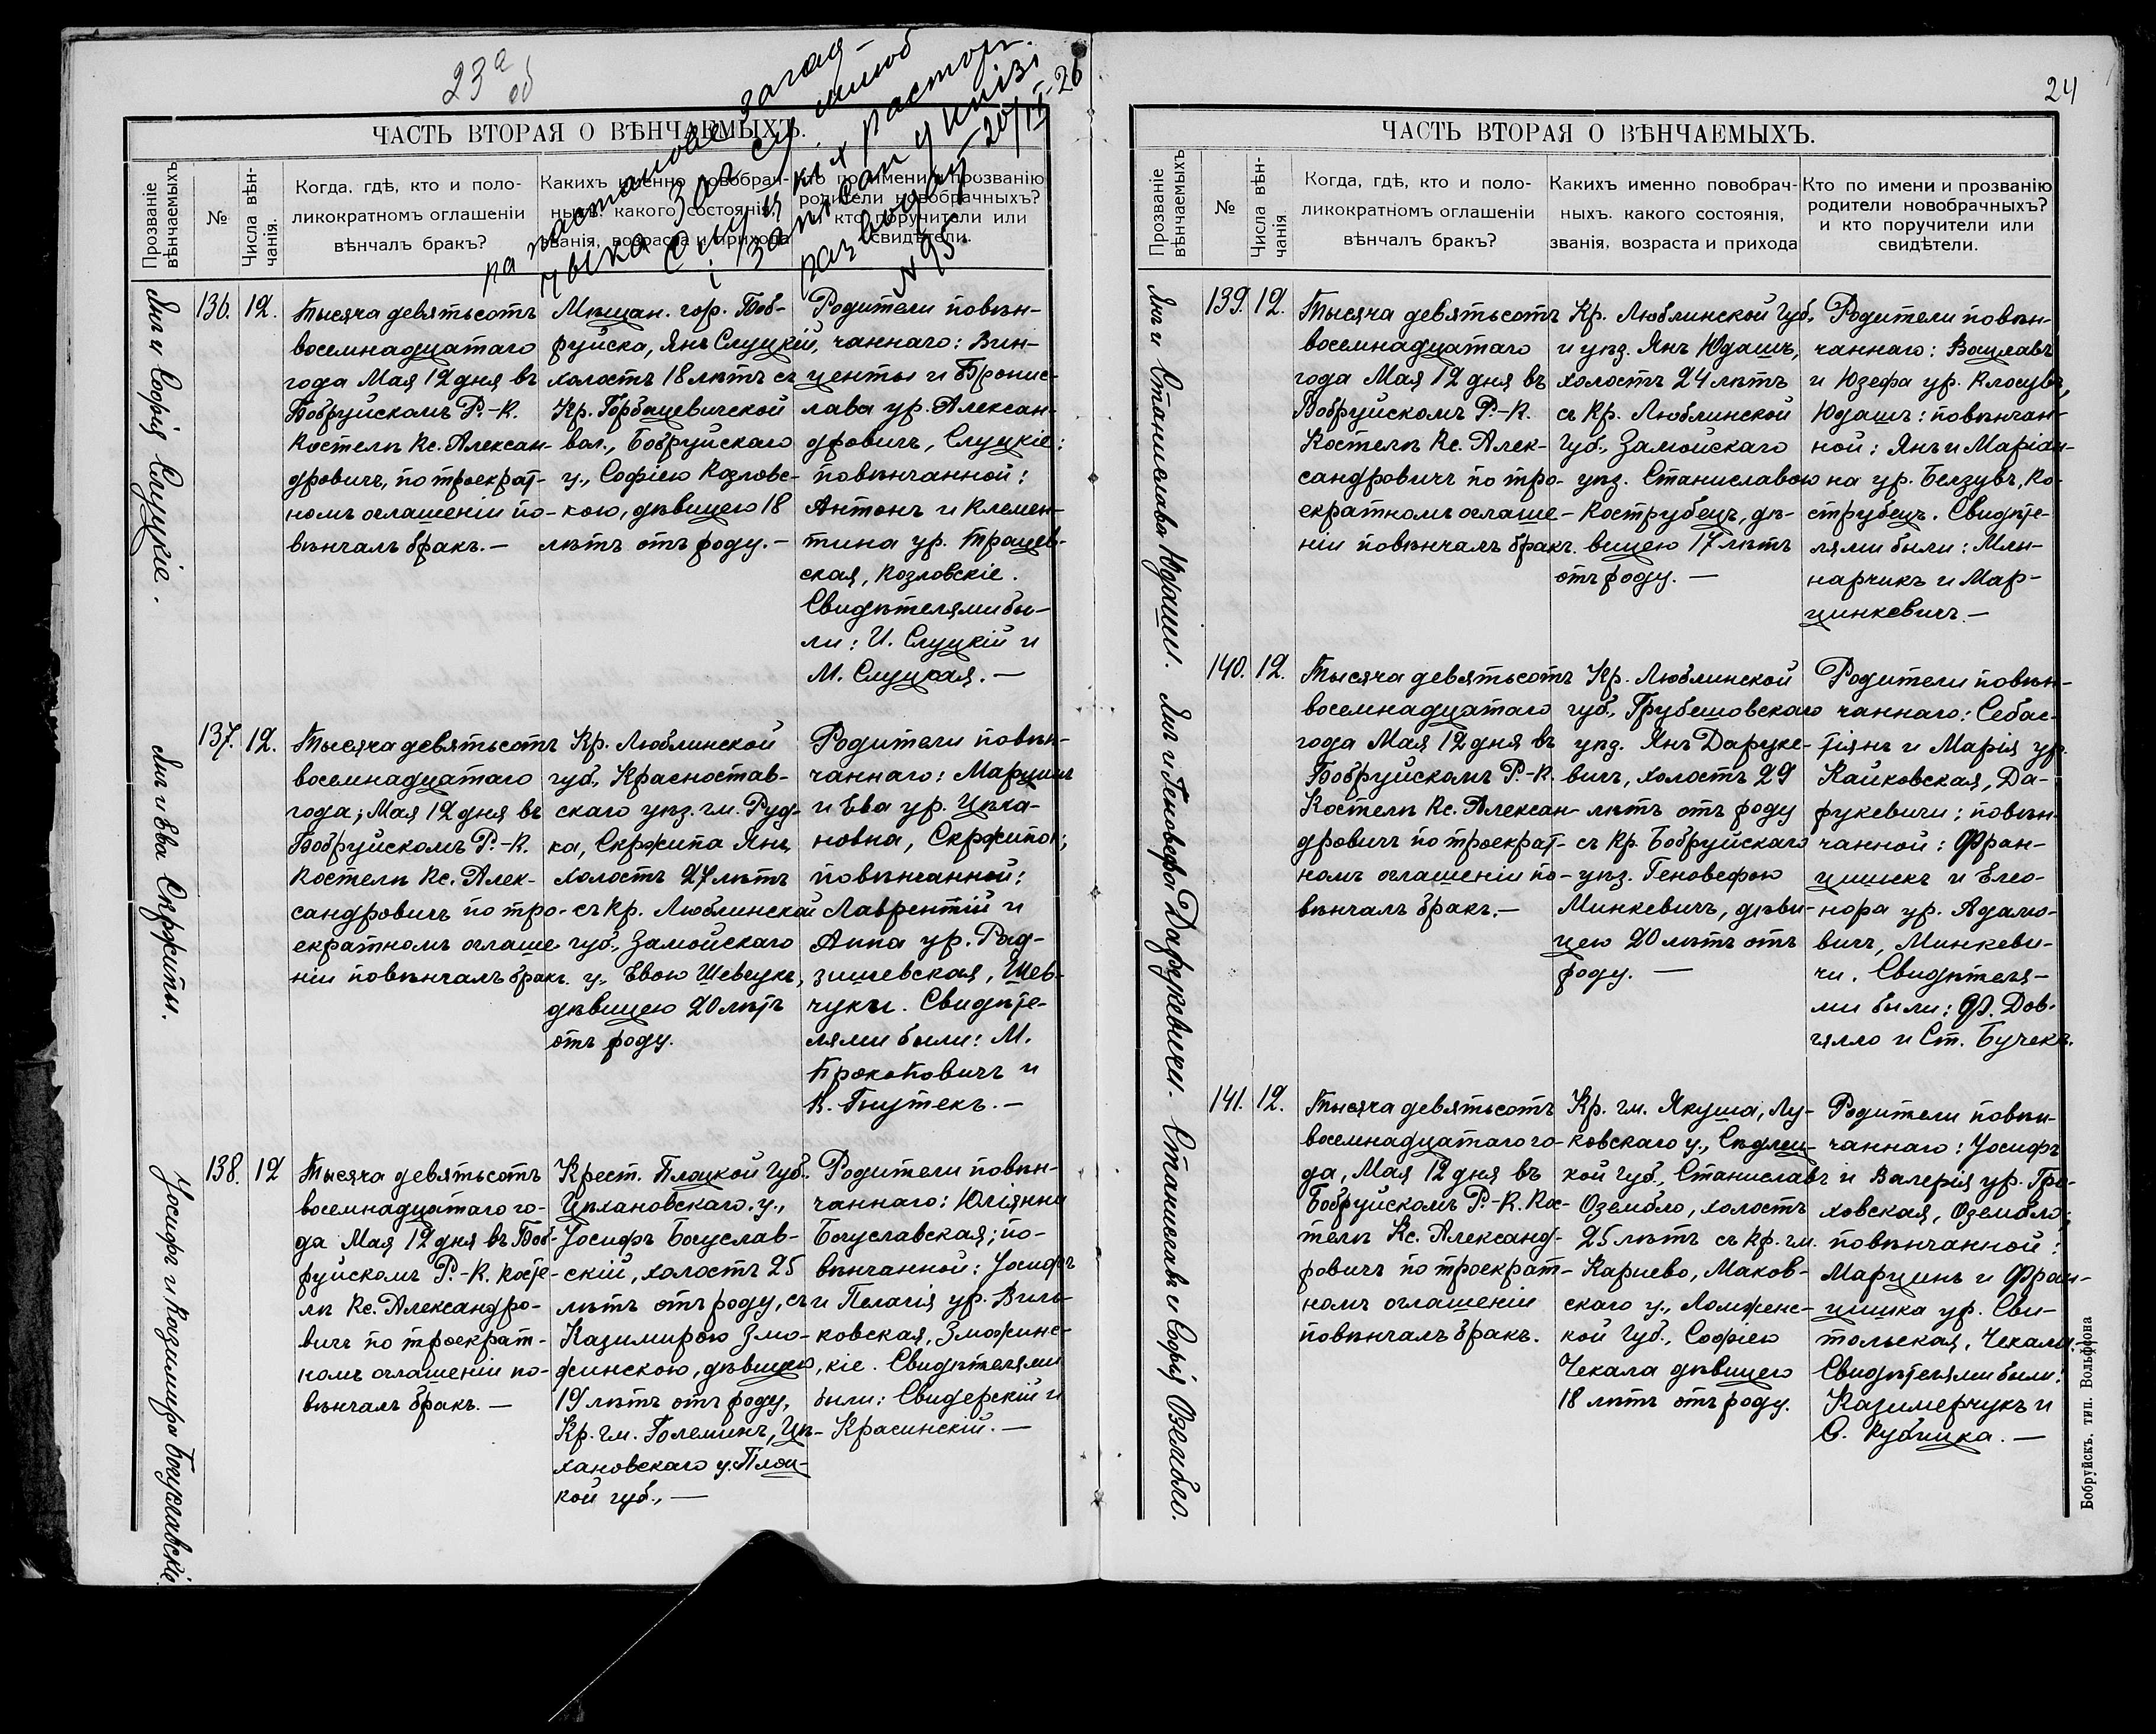 23а об
па пастанове загад-
чыка Загс у шлюб
Слуцкіх растorг.
і запісан у кнізі
разводау
N 95 - 20/IX-26
ЧАСТЬ ВТОРАЯ О ВѢНЧАЕМЫХЪ.
Прозваніе
вѣнчаемыхъ
№
Числа вѣн-
чанія.
Когда, гдѣ, кто и поло-
ликократномъ оглашеніи
вѣнчалъ бракъ?
Какихъ именно новобрач-
ныхъ. какого состоянія,
званія, возраста и прихода
Кто по имени и прозванію
родители новобрачныхъ?
и кто поручители или
свидѣтели.
Янъ и Софія Слуцкіе.
136. 12.
Тысяча девятьсотъ
восемнадцатаго
года Мая 12 дня въ
Бобруйскомъ Р.-К.
Костелѣ Кс. Алексан-
дровичъ, по троекрат-
номъ оглашеніи по-
вѣнчалъ бракъ. —
Мѣщан. гор. Боб-
руйска, Янъ Слуцкій,
холостъ 18 лѣтъ съ
Кр. Горбацевичской
вол., Бобруйскаго
у., Софіею Козловс-
кою, дѣвицею 18
лѣтъ отъ роду. —
Родители повѣн-
чаннаго: Вин-
центы и Бронис-
лава ур. Алексан-
дровичъ, Слуцкіе:
повѣнчанной:
Антонъ и Клемен-
тина ур. Трацев-
ская, Козловскіе.
Свидѣтелями бы-
ли: И. Слуцкій и
М. Слуцкая. —
Янъ и Ева Скржипы.
137. 12.
Тысяча девятьсотъ
восемнадцатаго
года; Мая 12 дня въ
Бобруйскомъ Р.-К.
Костелѣ Кс. Алек-
сандровичъ по тро-
екратномъ оглаше-
ніи повѣнчалъ бракъ.
Кр. Люблинской
губ., Красностав-
скаго уѣз. гм. Руд-
ка, Скржипа Янъ,
холостъ 27 лѣтъ
съ кр. Люблинской
губ., Замойскаго
у., Евою Шевчукъ,
дѣвицею 20 лѣтъ
отъ роду.
Родители повѣн-
чаннаго: Марцинъ
и Ева ур. Цѣка-
новна, Скржипы;
повѣнчанной:
Лаврентій и
Анна ур. Рад-
зишевская, Шев-
чуки. Свидѣте-
лями были: М.
Прокоповичъ и
К. Гнутекъ. —
Іосифъ и Казимира Богуславскіе.
138. 12
Тысяча девятьсотъ
восемнадцатаго го-
да Мая 12 дня въ Боб-
руйскомъ Р.-К. косте-
лѣ Кс. Александро-
вичъ по троекрат-
номъ оглашеніи по-
вѣнчалъ бракъ. —
Крест. Плоцкой Губ.
Цѣхановскаго у.,
Іосифъ Богуслав-
скій, холостъ 25
лѣтъ отъ роду, съ
Казимирою Змо-
жинскою, дѣвицею,
19 лѣтъ отъ роду,
Кр. гм. Големинъ, Цѣ-
хановскаго у. Плоц-
кой губ., —
Родители повѣн-
чаннаго: Юліянна
Богуславская; по-
вѣнчанной: Іосифъ
и Пелагія ур. Виль-
ковская, Зможинс-
кіе. Свидѣтелями
были: Свидерскій и
Красинскій. —
24
ЧАСТЬ ВТОРАЯ О ВѢНЧАЕМЫХЪ.
Прозваніе
вѣнчаемыхъ
№
Числа вѣн-
чанія
Когда, гдѣ, кто и поло-
ликократномъ оглашеніи
вѣнчалъ бракъ?
Какихъ именно повобрач-
ныхъ. какого состоянія,
званія, возраста и прихода
Кто по имени и прозванію
родители новобрачныхъ?
и кто поручители или
свидѣтели.
Янъ и Станислава Юдаши.
139. 12.
Тысяча девятьсотъ
восемнадцатаго
года Мая 12 дня въ
Бобруйскомъ Р.-К.
Костелѣ Кс. Алек-
сандровичъ по тро-
екратномъ оглаше-
ніи повѣнчалъ бракъ.
Кр. Люблинской Губ.,
и уѣз. Янъ Юдашъ,
холостъ 24 лѣтъ
съ Кр. Люблинской
Губ., Замойскаго
уѣз. Станиславою
Кострубецъ, дѣ-
вицею 17 лѣтъ
отъ роду. —
Родители повѣн-
чаннаго: Вацлавъ
и Юзефа ур. Клосувъ,
Юдашъ: повѣнчан-
ной: Янъ и Маріан-
на ур. Белзувъ, Ко-
струбецъ. Свидѣте-
лями были: Млы-
нарчикъ и Мар-
цинкевичъ. —
Янъ и Геновефа Дарукевичи.
140. 12.
Тысяча девятьсотъ
восемнадцатаго
года Мая 12 дня въ
Бобруйскомъ Р.-К.
Костелѣ Кс. Алексан-
дровичъ по троекрат-
номъ оглашеніи по-
вѣнчалъ бракъ. —
Кр. Люблинской
губ., Грубешовскаго
уѣз. Янъ Даруке-
вичъ, холостъ 29
лѣтъ отъ роду
съ кр. Бобруйскаго
уѣз. Геновефою
Минкевичъ, дѣви-
цею 20 лѣтъ отъ
роду. —
Родители повѣн-
чаннаго: Себас-
тіянъ и Марія ур.
Кайковская, Да-
рукевичи; повѣн-
чанной: Фран-
цишекъ и Елео-
нора ур. Адамо-
вичъ, Минкеви-
чи. Свидѣтеля-
ми были: Ф. Дов-
гялло и Ст. Бучекъ.
Станиславъ и Софія Озембло.
141. 12.
Тысяча девятьсотъ
восемнадцатаго го-
да, Мая 12 дня въ
Бобруйскомъ Р.-К. Кос-
телѣ Кс. Александ-
ровичъ по троекрат-
номъ оглашеніи
повѣнчалъ бракъ.
Кр. гм. Якуша, Лу-
ковскаго у., Сѣдлец-
кой Губ., Станиславъ
Озембло, холостъ
25 лѣтъ съ кр. гм.
Карнево, Маков-
скаго у., Ломженс-
кой Губ., Софіею
Чекала дѣвицею
18 лѣтъ отъ роду.
Родители повѣн-
чаннаго: Іосифъ
и Валерія ур. Гро-
ховская, Озембло;
повѣнчанной:
Марцинъ и Фран-
цишка ур. Сви-
тольская, Чекалы.
Свидѣтелями были:
Казимерчукъ и
С. Кубицка. —
Бобруйскъ, тип. Вольфсона